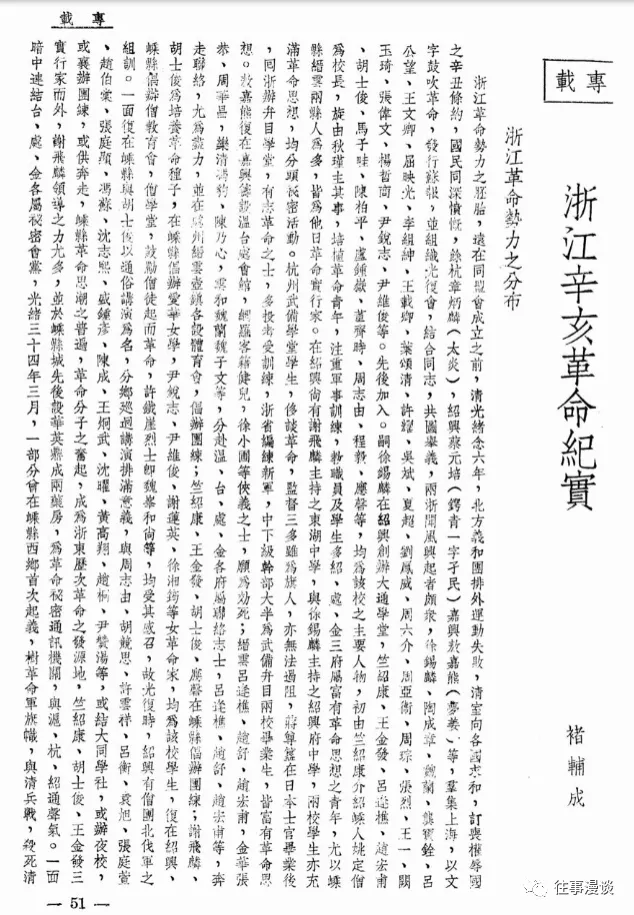 專載
專載
浙江辛亥革命紀實
褚輔成
浙江革命勢力之分布
浙江革命勢力之胚胎，遠在同盟會成立之前，清光緒念六年，北方義和團排外運動失敗，清室向各國求和，訂喪權辱國
之辛丑條約，國民同深憤慨，餘杭章炳麟（太炎），紹興蔡元培（鍔青一字孑民）嘉興敖嘉熊（夢姜）等，羣集上海，以文
字鼓吹革命，發行蘇報，並組織光復會，結合同志，共圖舉義，兩浙聞風興起者頗衆，徐錫麟、陶成章、魏蘭、龔寶銓、呂
公望、王文卿、屈映光、李組紳、王載卿、葉頌清、許燿、吳斌、夏超、劉鳳威、周六介、周亞衛、周琮、張烈、王一、闕
玉琦、張偉文、楊哲商、尹銳志、尹維俊等。先後加入。嗣徐錫麟在紹興創辦大通學堂，竺紹康、王金發、呂逢樵、趙宏甫
、胡士俊、馬子畦、陳柏平、盧鍾嶽、董齊時、周志由、程毅、應聲等，均為該校之主要人物，初由竺紹康介紹嵊人姚定僧
為校長，旋由秋瑾主其事，培植革命青年，注重軍事訓練，敎職員及學生多紹、處、金三府屬富有革命思想之青年，尤以嵊
縣縉雲兩縣人為多，皆為他日革命實行家。在紹興尚有謝飛麟主持之東湖中學，與徐錫麟主持之紹興府中學，兩校學生亦充
滿革命思想，均分頭秘密活動。杭州武備學堂學生，侈談革命，監督三多雖為旗人，亦無法遏阻，蔣尊簋在日本士官畢業後
，回浙辦弁目學堂，有志革命之士，多投考受訓練，浙省編練新軍，中下級幹部大半為武備弁目兩校畢業生，皆富有革命思
想。敖嘉熊復在嘉興儀設溫台處會館，網羅客籍健兒，徐小圃等俠義之士，願為効死；縉雲呂逢樵、趙舒、趙宏甫，金華張
恭、周華昌，樂清馮豹、陳乃心，雲和魏蘭魏子文等，分赴溫、台、處、金各府屬聯絡志士，呂逢樵、趙舒、趙宏甫等，奔
走聯絡，尤為盡力，並在處州縉雲壺鎮各設體育會，倡辦團練；竺紹康、王金發、胡士俊、應聲在嵊縣倡辦團練；謝飛麟、
胡士俊為培養革命種子，在嵊縣倡辦愛華女學，尹銳志、尹維俊、謝蓮英、徐湘筠等女革命家，均為該校學生，復在紹興、
嵊縣倡辦僧敎育會，僧學堂，鼓勵僧徒起而革命，許鐵崖烈士即魏峯和尚等，均受其感召，故光復時，紹興有僧團北伐軍之
組訓。一面復在嵊縣與胡士俊以通俗講演為名，分鄉巡迴講演排滿意義，與周志由、胡競思、許雲祥、呂衡、袁旭、張庭萱
、趙伯棠、張庭顯、馮蘇、沈志熙、盛鍾彥、陳成、王烔武、沈曜、黃高翔、趙桐、尹贊湯等，或結大同學社，或辦夜校，
或襄辦團練，或供奔走，嵊縣革命思潮之普遍，革命分子之奮起，成為浙東歷次革命之發源地，竺紹康、胡士俊、王金發三
實行家而外，謝飛麟領導之力尤多，並於嵊縣城先後設華英彝成兩藥房，為革命秘密通訊機關，與滬、杭、紹通聲氣。一面
暗中連結台、處、金各屬祕密會黨，光緒三十四年三月，一部分曾在嵊縣西鄉首次起義，樹革命軍旗幟，與清兵戰，殺死清
— 51 —
往事漫谈